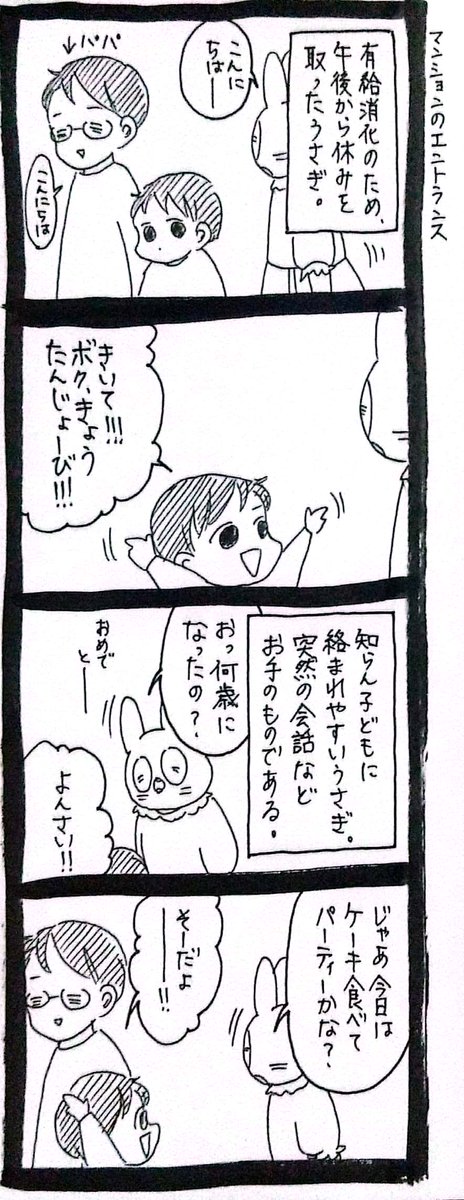 マンションのエントランス
有給消化のため、
午後から休みを
取ったうさぎ。
こんに
ちはー
↓パパ
こんにちは
きいて!!!
ボク、きょう
たんじょーび!!!
知らん子どもに
絡まれやすいうさぎ。
突然の会話など
お手のものである。
おっ何歳に
なったの?
おめで
とー
よんさい!!
じゃあ今日は
ケーキ食べて
パーティーかな?
そーだよ
ー!!